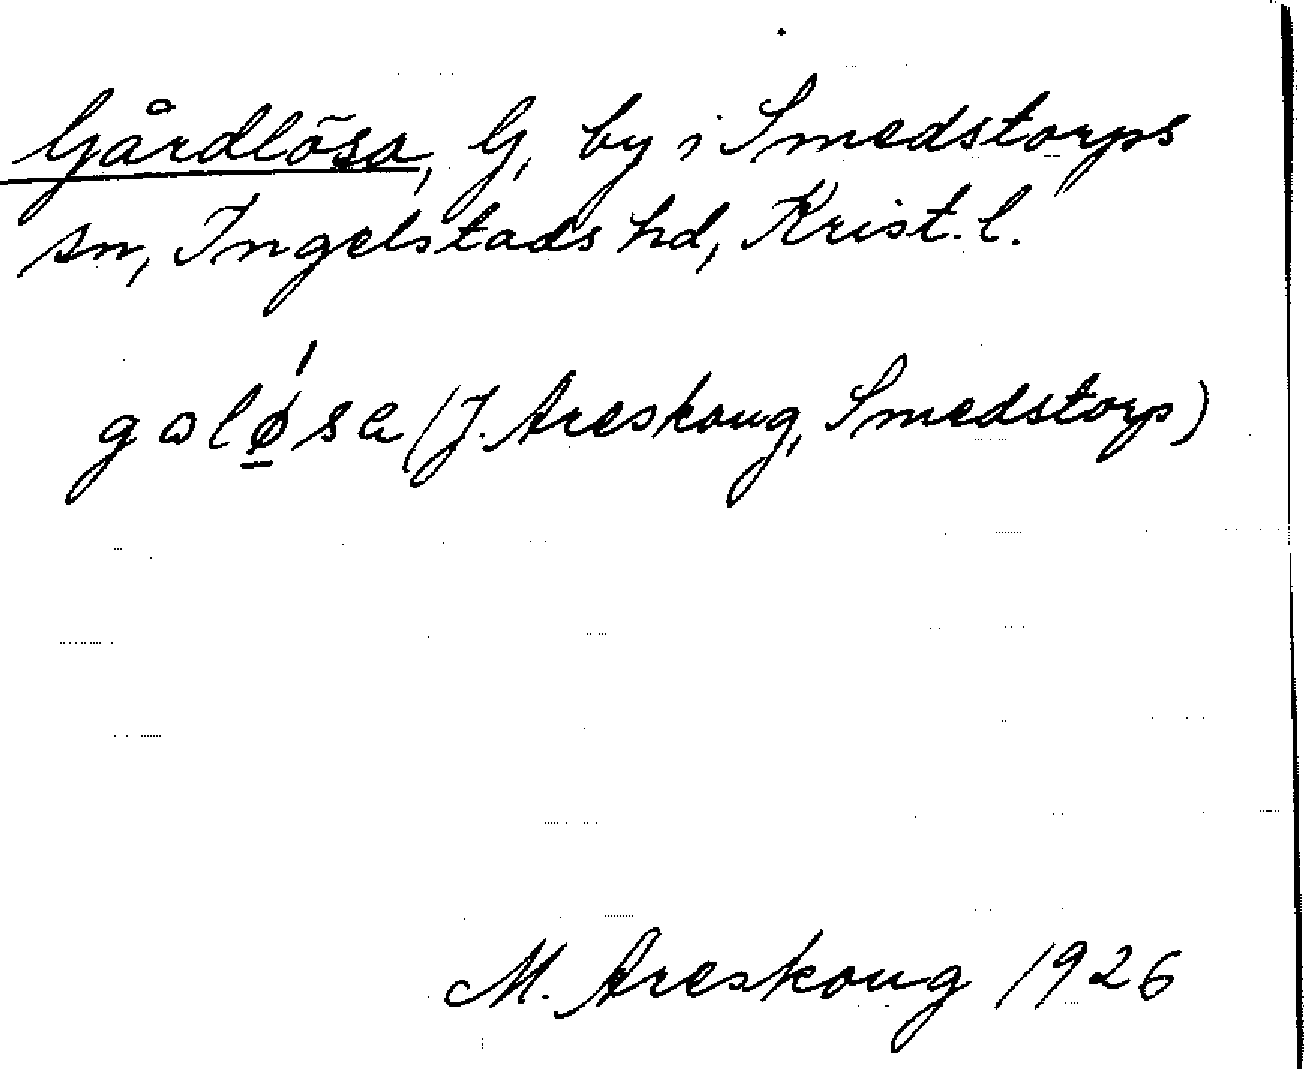 Gårdlösa, G, by i Smedstorps
sn, Ingelstads hd, Krist. l.
galǿ̱sa (J. Areskoug, Smedstorp)
M. Areskoug 1926